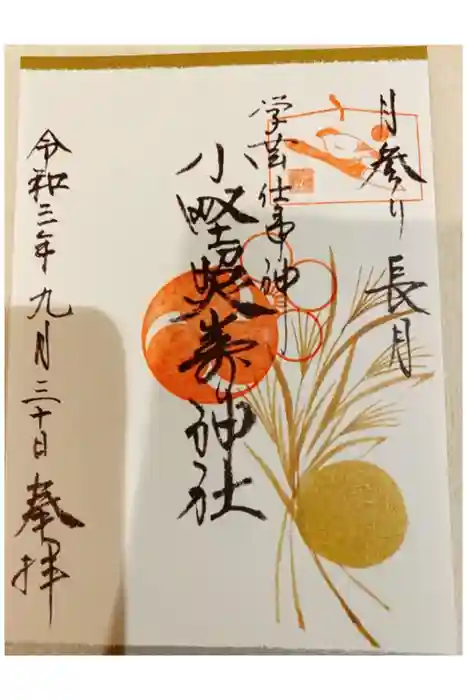 月参り 長月
学芸仕事神
小野照崎神社
令和三年九月三十日 奉拝